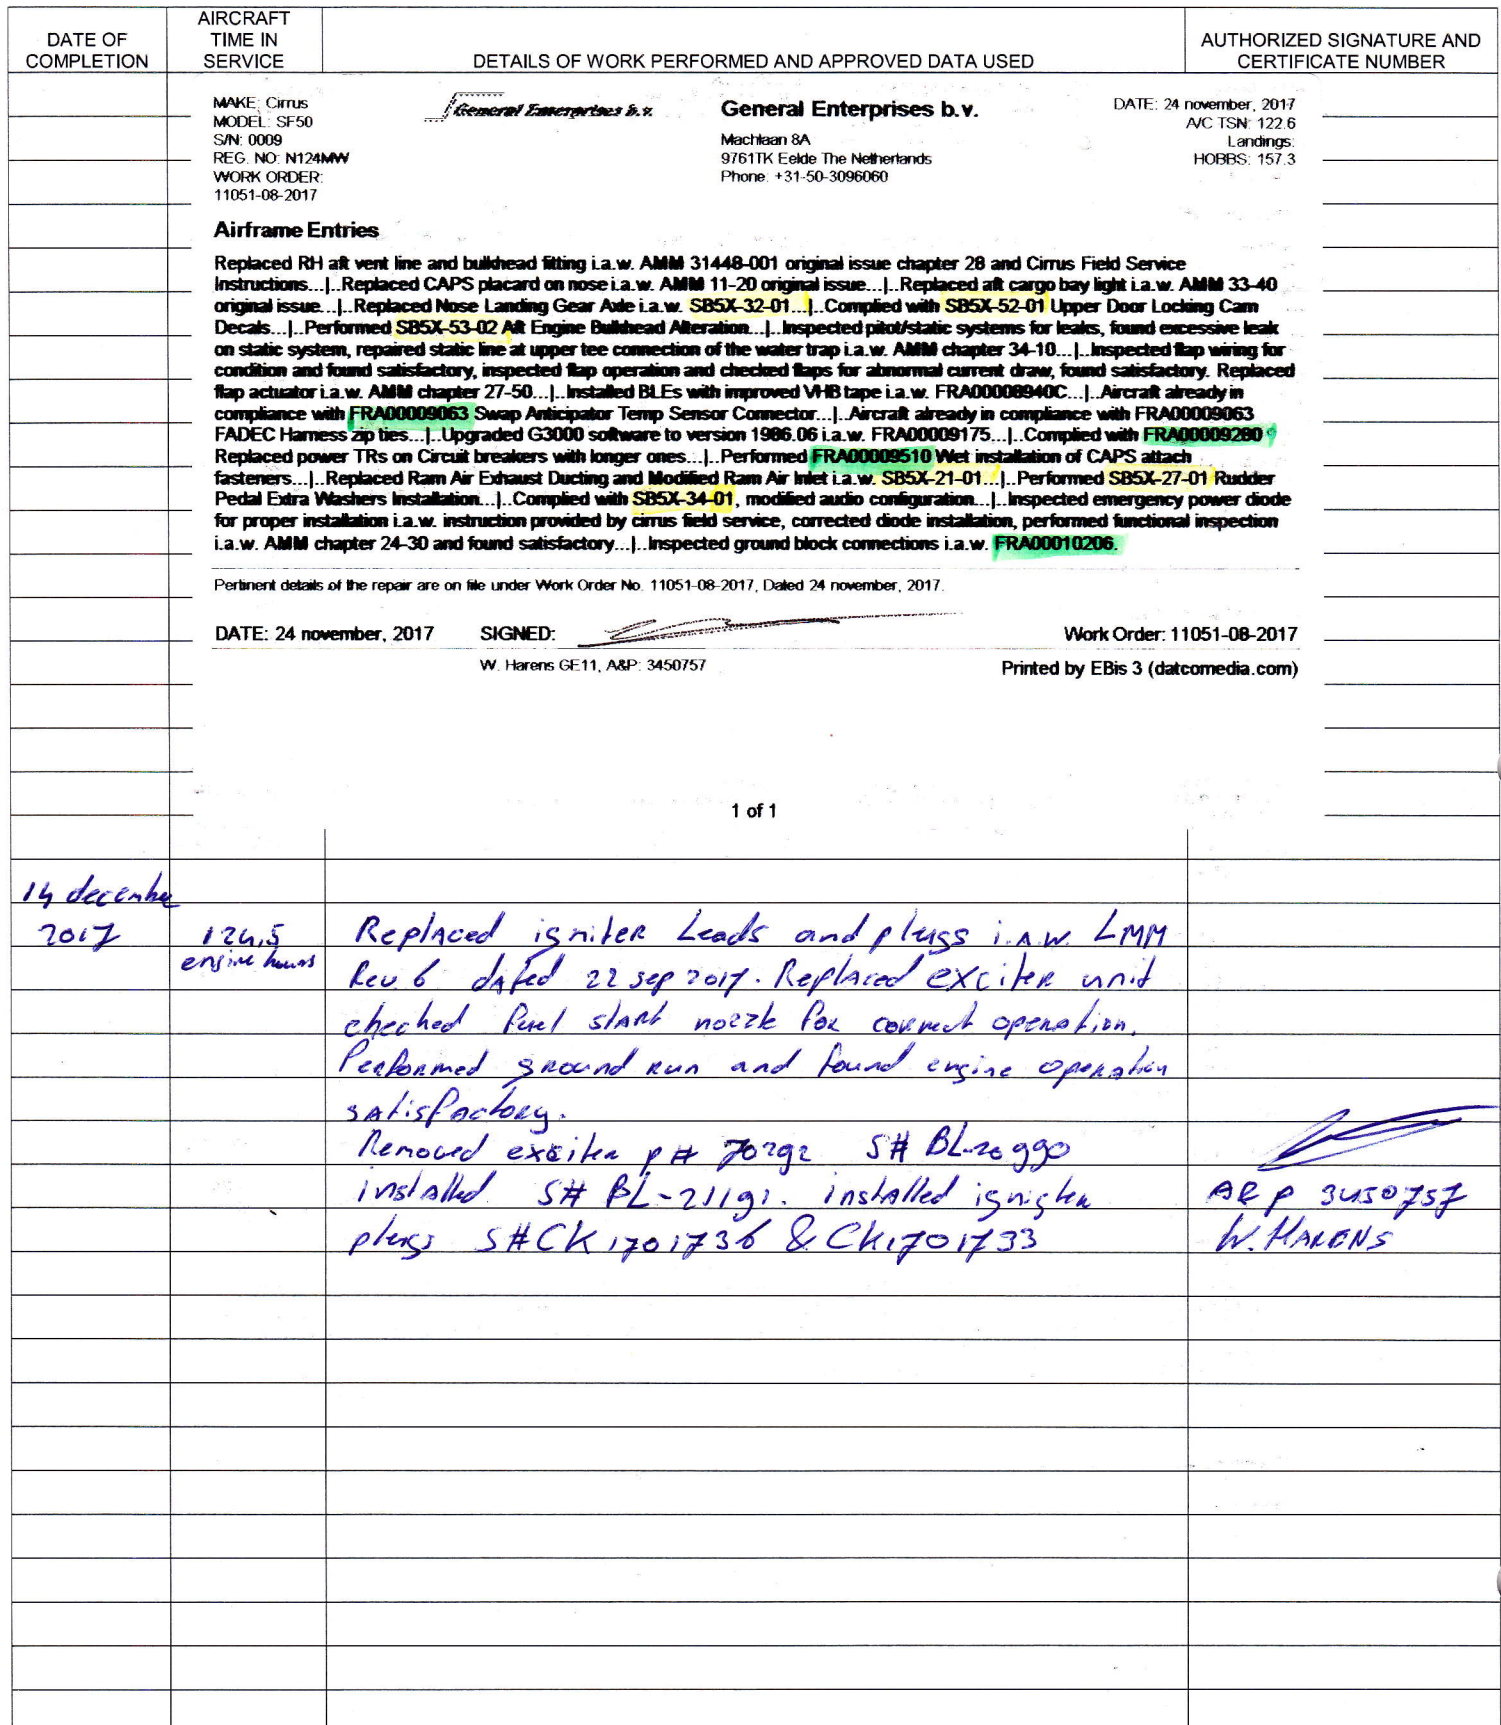 DATE OF COMPLETION
AIRCRAFT TIME IN SERVICE
DETAILS OF WORK PERFORMED AND APPROVED DATA USED
AUTHORIZED SIGNATURE AND CERTIFICATE NUMBER
MAKE: Cirrus
MODEL: SF50
S/N: 0009
REG. NO: N124MW
WORK ORDER:
11051-08-2017
General Enterprises b.v.
General Enterprises b.v.
Machlaan 8A
9761TK Eelde The Netherlands
Phone: +31-50-3096060
DATE: 24 november, 2017
A/C TSN: 122.6
Landings:
HOBBS: 157.3
Airframe Entries
Replaced RH aft vent line and bulkhead fitting i.a.w. AMM 31448-001 original issue chapter 28 and Cirrus Field Service
Instructions...|..Replaced CAPS placard on nose i.a.w. AMM 11-20 original issue...|..Replaced aft cargo bay light i.a.w. AMM 33-40
original issue...|..Replaced Nose Landing Gear Axle i.a.w. SB5X-32-01...|..Complied with SB5X-52-01 Upper Door Locking Cam
Decals...|..Performed SB5X-53-02 Aft Engine Bulkhead Alteration...|..Inspected pitot/static systems for leaks, found excessive leak
on static system, repaired static line at upper tee connection of the water trap i.a.w. AMM chapter 34-10...|..Inspected flap wiring for
condition and found satisfactory, inspected flap operation and checked flaps for abnormal current draw, found satisfactory. Replaced
flap actuator i.a.w. AMM chapter 27-50...|..Installed BLEs with improved VHB tape i.a.w. FRA00008940C...|..Aircraft already in
compliance with FRA00009063 Swap Anticipator Temp Sensor Connector...|..Aircraft already in compliance with FRA00009063
FADEC Harness zip ties...|..Upgraded G3000 software to version 1986.06 i.a.w. FRA00009175...|..Complied with FRA00009280
Replaced power TRs on Circuit breakers with longer ones...|..Performed FRA00009510 Wet installation of CAPS attach
fasteners...|..Replaced Ram Air Exhaust Ducting and Modified Ram Air Inlet i.a.w. SB5X-21-01...|..Performed SB5X-27-01 Rudder
Pedal Extra Washers Installation...|..Complied with SB5X-34-01, modified audio configuration...|..Inspected emergency power diode
for proper installation i.a.w. instruction provided by cirrus field service, corrected diode installation, performed functional inspection
i.a.w. AMM chapter 24-30 and found satisfactory...|..Inspected ground block connections i.a.w. FRA00010206.
Pertinent details of the repair are on file under Work Order No. 11051-08-2017, Dated 24 november, 2017.
DATE: 24 november, 2017 SIGNED: Work Order: 11051-08-2017
W. Harens GE11, A&P: 3450757 Printed by EBis 3 (datcomedia.com)
1 of 1
14 december
2017 124.5 Replaced igniter Leads and plugs i.a.w. LMM
engine hours Rev 6 dated 22 sep 2017. Replaced exciter unit
checked fuel start nozzle for correct operation.
Performed ground run and found engine operation
satisfactory.
Removed exciter p# 70292 S# BL-20990
installed S# BL-21191. installed ignigter A&P 3450757
plugs S#CK1701736 & CK1701733 W. HARENS